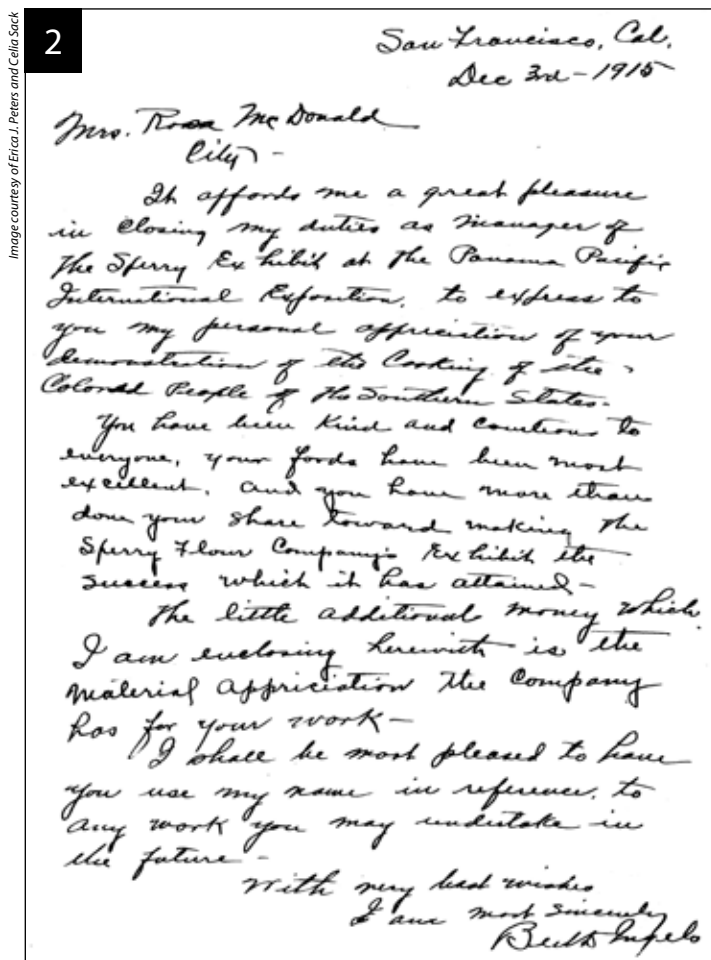 Image courtesy of Erica J. Peters and Celia Sack
2
San Francisco, Cal.
Dec 3rd – 1915
Mrs. Rosa McDonald
City –
It affords me a great pleasure
in closing my duties as manager of
the Sperry Exhibit at the Panama Pacific
International Exposition, to express to
you my personal appriciation of your
demonstration of the Cooking of the
Colored People of the Southern States.
You have been kind and courteous to
everyone, your foods have been most
excellent, and you have more than
done your share toward making the
Sperry Flour Company's Exhibit the
success which it has attained –
The little additional money which
I am enclosing herewith is the
material appriciation the Company
has for your work –
I shall be most pleased to have
you use my name in reference, to
any work you may undertake in
the future –
With very best wishes
I am most sincerely